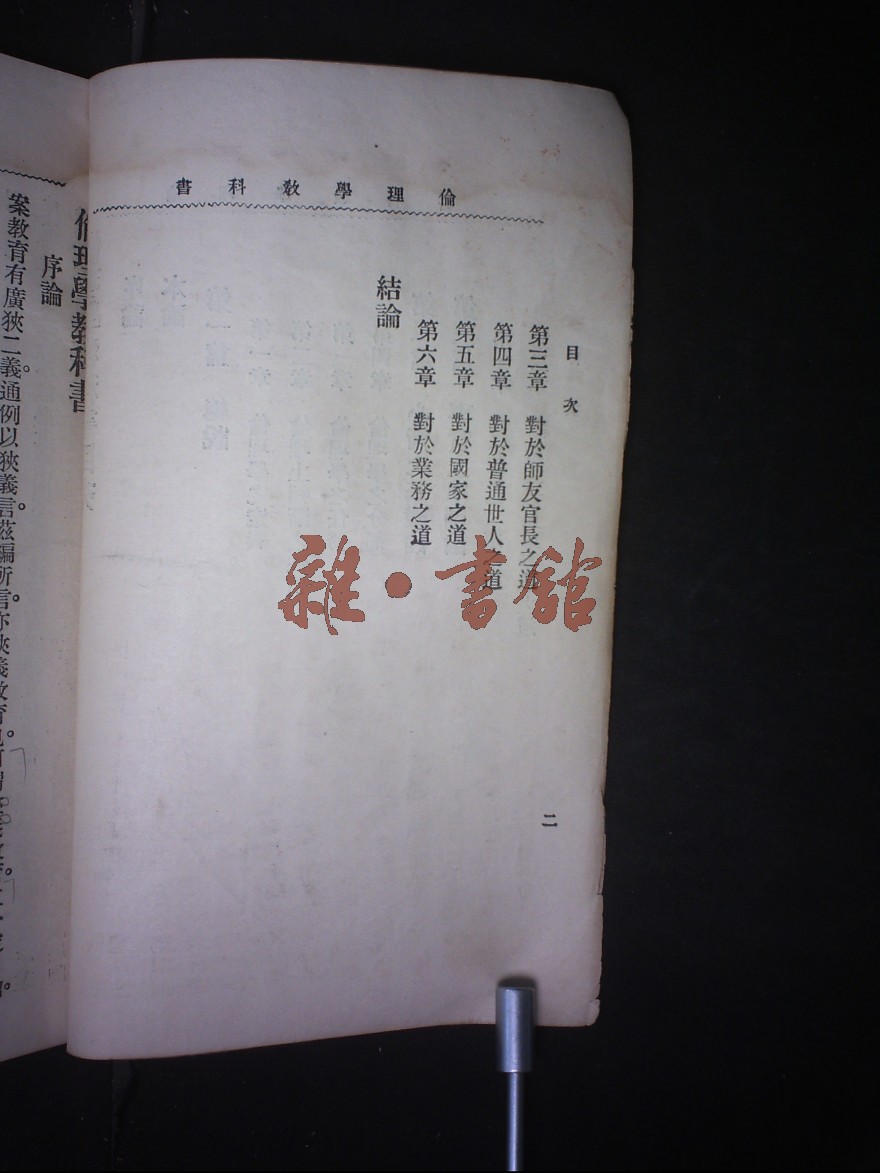 倫理學教科書
目次
第三章 對於師友官長之道
第四章 對於普通世人之道
第五章 對於國家之道
第六章 對於業務之道
結論
二
雜·書館
倫理學教科書
序論
案教育有廣狹二義。通例以狹義言。茲編所言。亦狹義教育也。